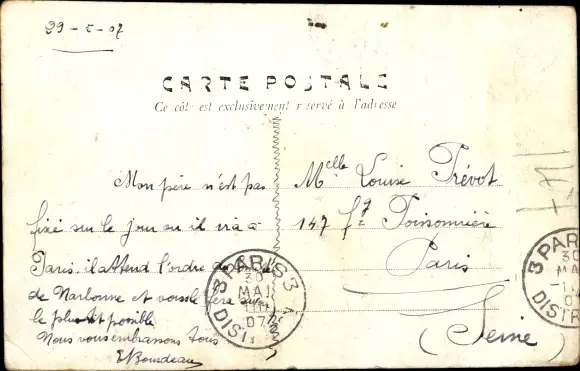 29-5-07
CARTE POSTALE
Ce côté est exclusivement réservé à l'adresse
Mon père n'est pas
fixé sur le jour où il ira à
Paris. il attend l'ordre
de Narbonne et vous le fera
le plus tôt possible
Nous vous embrassons tous
Mlle Louise Prévot
147 fg Poissonnière
Paris
(Seine)
PARIS 3
30
MAI
07
DISTR
3 PARIS
30
MAI
DISTR